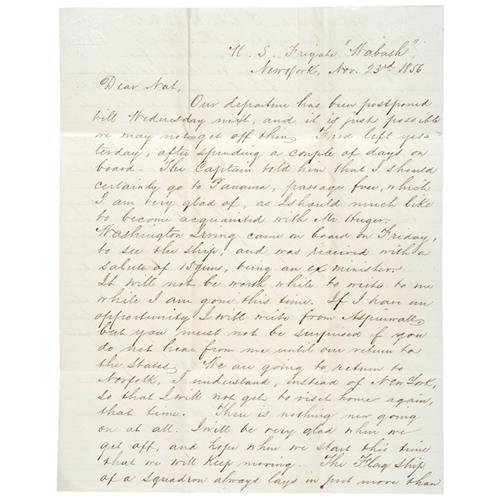 U. S. Frigate "Wabash"
New York, Nov. 23rd. 1856
Dear Nat,
Our departure has been postponed
till Wednesday next, and it is just possible
we may not get off then. Fred left yes-
terday, after spending a couple of days on
board. The Captain told him that I should
certainly go to Panama, passage free, which
I am very glad of, as I should much like
to become acquainted with Mr Huger.
Washington Irving came on board on Friday,
to see the ship, and was received with a
salute of 15 guns, being an ex minister.
It will not be worth while to write to me
while I am gone this time. If I have an
opportunity I will write from Aspinwall,
but you must not be surprised if you
do not hear from me until our return to
the States. We are going to return to
Norfolk, I understand, instead of New York,
so that I will not get to visit home again,
that time. There is nothing new going
on at all. I will be very glad when we
get off, and hope when we start this time
that we will keep moving. The Flag ship
of a squadron always lays in port more than